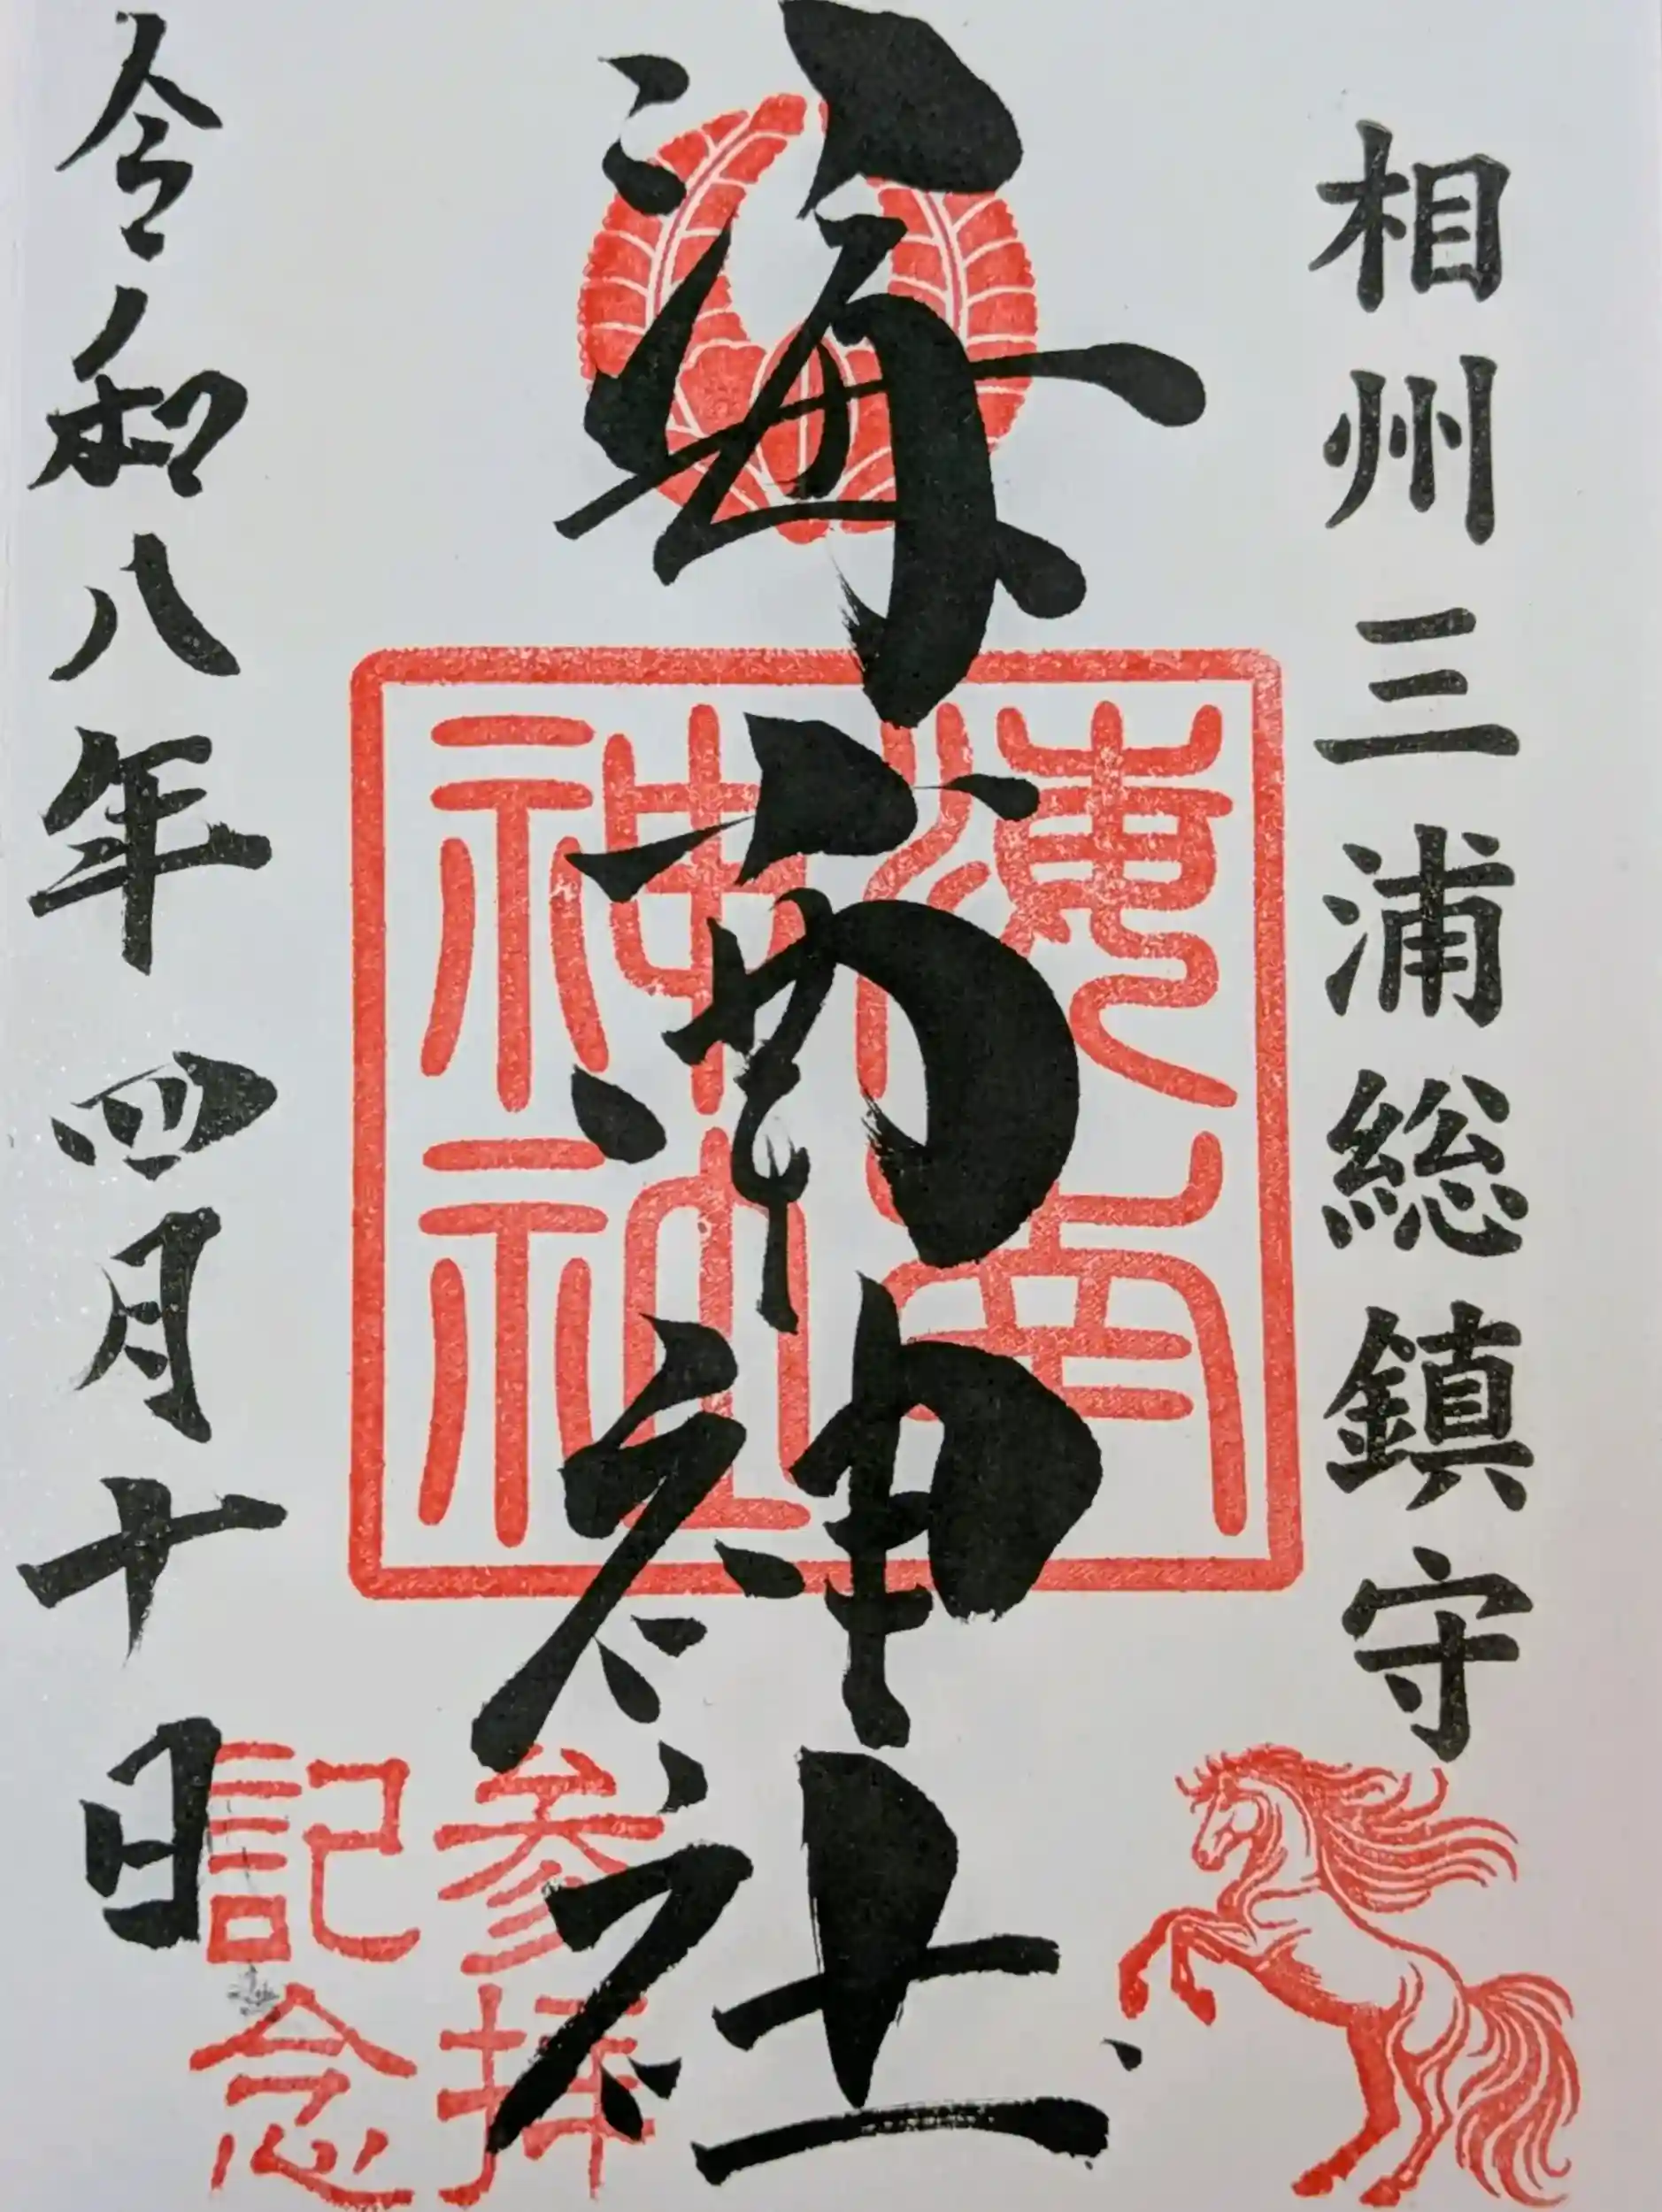 相州三浦総鎮守
海南神社
海南神社
参拝
記念
令和八年四月十日